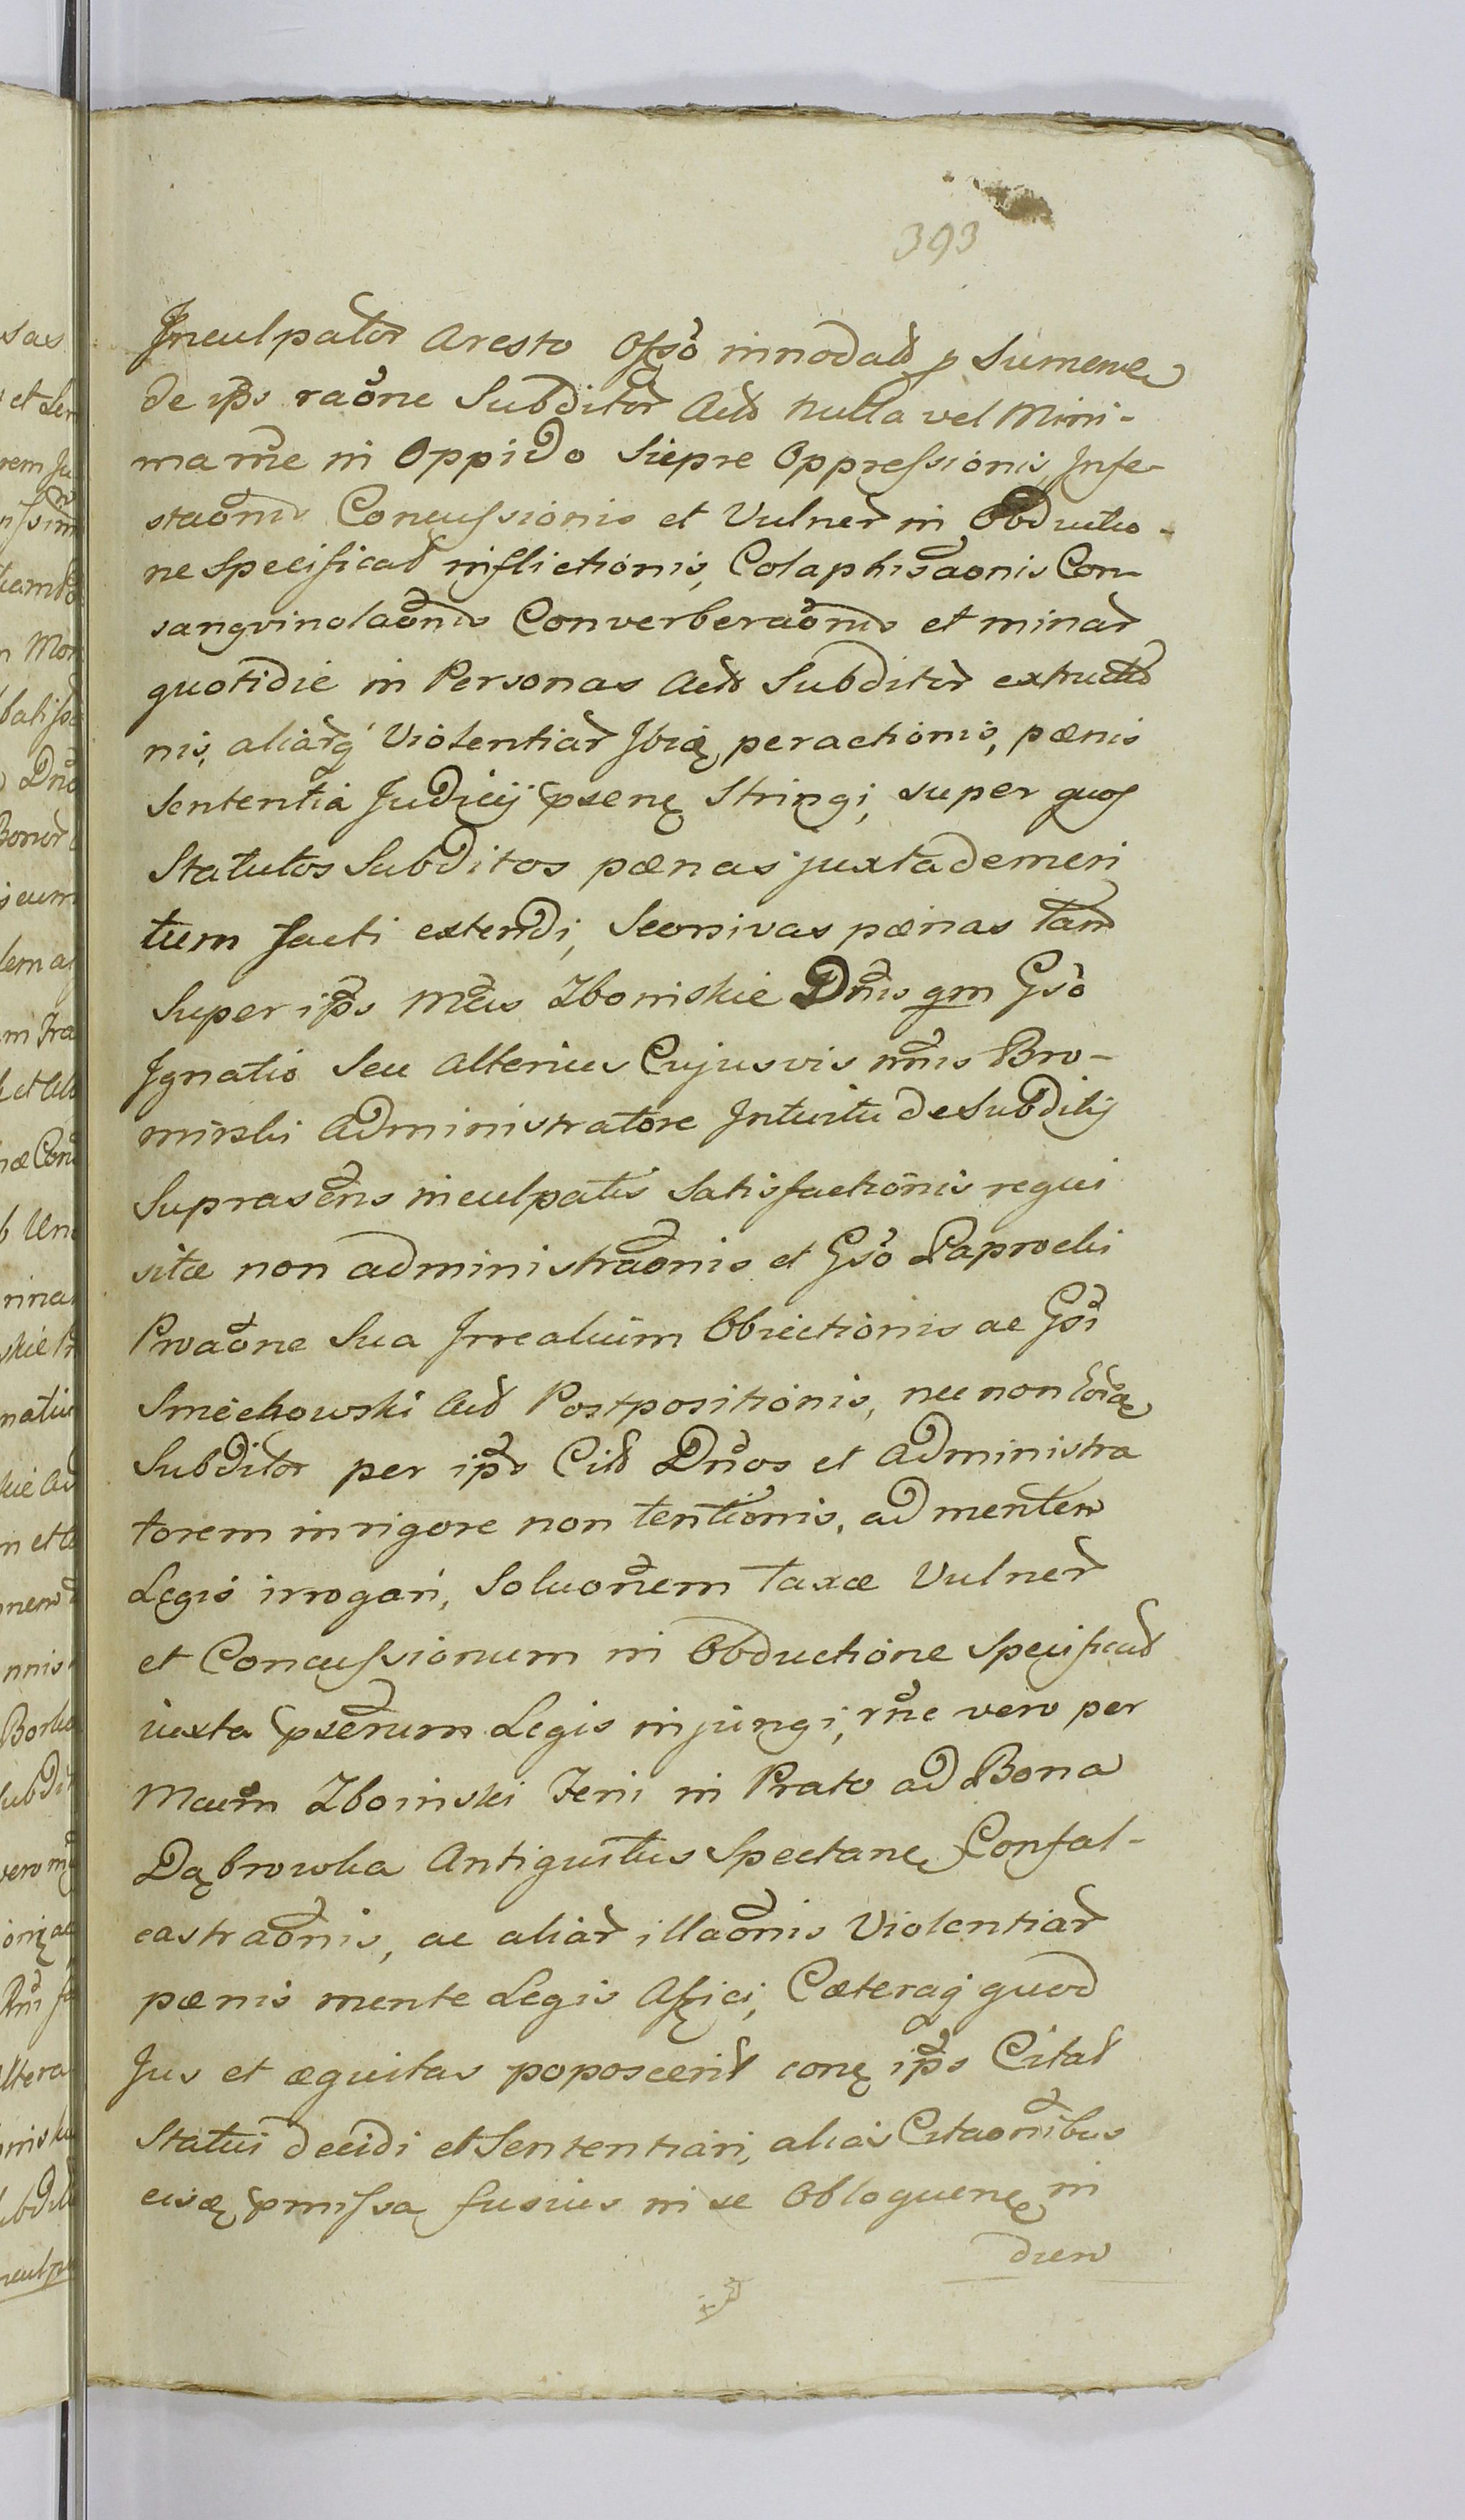 393
Inculpator Aresto Offso innodad p Sumene
de ips raone Subditor Actb nulla vel Mini-
ma rne in Oppido Siepre Oppressionis, Infe-
staonis Concussionis et Vulner in Obductio-
ne Specificat inflictionis, Colaphisaonis Con-
sangvinolaonis Converberaonis et minar
quotidie in Personas Actb Subditor extructio
nis, aliarq Violentiar Ibiq peractionis, pænis
Sententia Judicij psenę Stringi, super quos
Statutos Subditos pænas juxta demeri
tum facti extendi, Seonivas pænas tam
Super ips Mcis Zboinskie Dnis qm Gso
Ignatio Seu Alterius Cujusvis nnis Bro-
minski Administratore Intuitu de Subditij
Suprasens inculpatis Satisfactionis requi
sitæ non administraonis et Gso Paprocki
Proaone Sua Irrealium Obiectionis ac Gsi
Smiechowski Actb Postpositionis, nec non
Subditor per ips Citt Dnos et Administra
torem in rigore non tentionis, ad mentem
Legis irrogari, Soluonem taxæ Vulner
et Concussionum in Obductione Specificat
iuxta pserum Legis injungi, rne vero per
Mcum Zboinski Feni in Prato ad Bona
Dąbrowka Antiquitus Spectanę Confal-
castraonis, ac aliar illaonis Violentiar
pænis mente Legis Affici, Cæteraq quod
Jus et æquitas poposcerit conę ips Citat
Statui decidi et Sententiari, aliais Citaonibus
eisq pmissa fusius in se Obloquenę in
diem